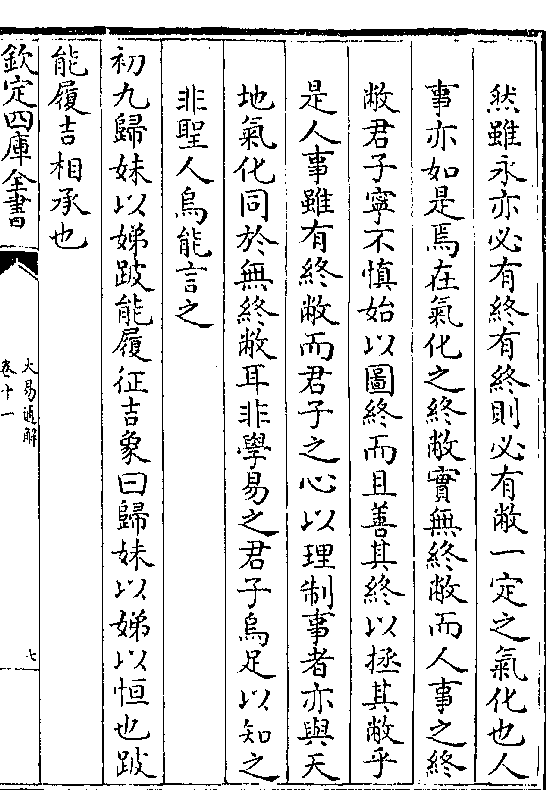 然雖永亦必有終有終則必有敝一定之氣化也人
事亦如是焉在氣化之終敝實無終敝而人事之終
敝君子寧不慎始以圖終而且善其終以拯其敝乎
是人事雖有終敝而君子之心以理制事者亦與天
地氣化同於無終敝耳非學易之君子烏足以知之
非聖人烏能言之
初九歸妹以娣跛能履征吉象曰歸妹以娣以恒也跛
能履吉相承也
欽定四庫全書
大易通解
卷十一
七